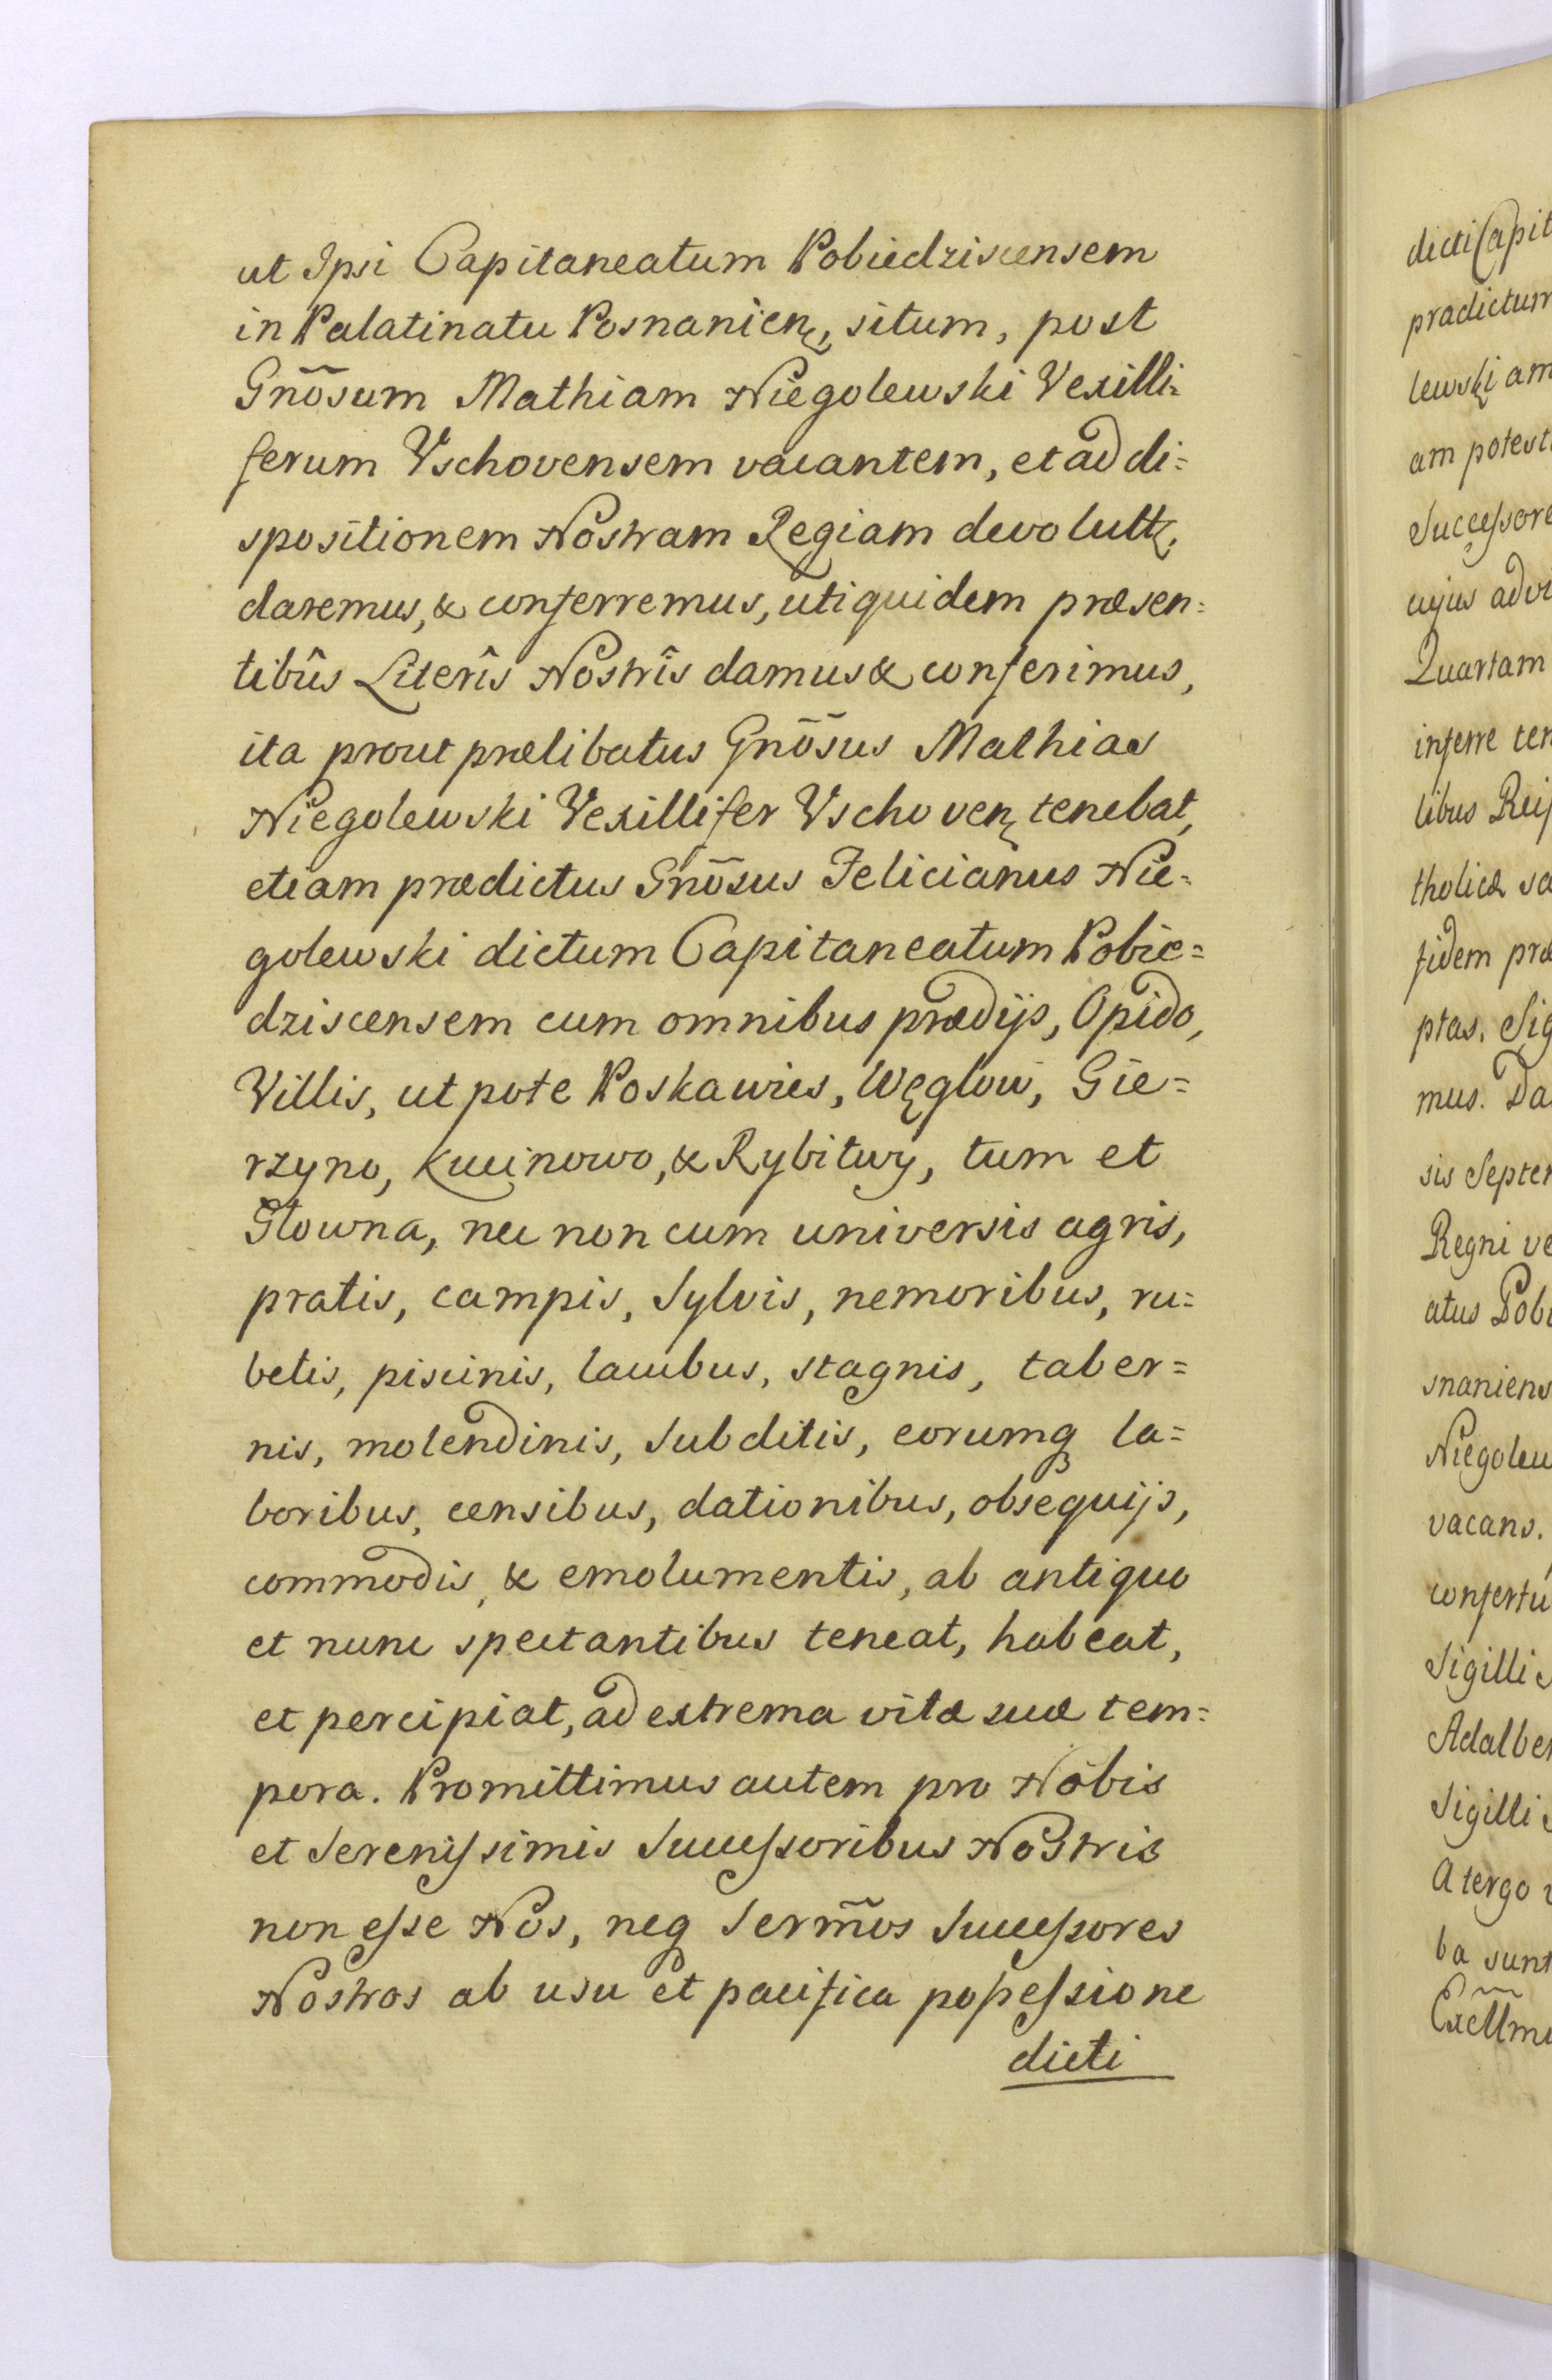 ut Ipsi Capitaneatum Pobiedziscensem
in Palatinatu Posnanien, situm, post
Gnõsum Mathiam Niegolewski Vexilli=
ferum Vschovensem vacantem, et ad di=
spositionem Nostram Regiam devolutt,
daremus, & conferremus, uti quidem præsen=
tibûs Literîs Nostrîs damus & conferimus,
ita prout prælibatus Gnõsus Mathias
Niegolewski Vexillifer Vschoven tenebat,
etiam prædictus Gnõsus Felicianus Nie=
golewski dictum Capitaneatum Pobie=
dziscensem cum omnibus prædijs, Opido,
Villis, ut pote Poskawies, Węglow, Gie=
rzyno, Kucinowo, & Rybitwy, tum et
Glowna, nec non cum universis agris,
pratis, campis, Sylvis, nemoribus, ru=
betis, piscinis, lacubus, stagnis, taber=
nis, molendinis, Subditis, eorumq la=
boribus, censibus, dationibus, obsequijs,
commodis, & emolumentis, ab antiquo
et nunc spectantibus teneat, habeat,
et percipiat, ad extrema vitæ suæ tem=
pora. Promittimus autem pro Nobis
et Serenissimis Successoribus Nostris
non esse Nos, neq Sermõs Successores
Nostros ab usu et pacifica possessione
dicti
dicti Capit
prædictum
lewski am
am potest
Successore
cujus ad vi
Quartam
inferre ten
libus Reip
tholicæ sa
fidem præ
ptas. Sig
mus. Da
sis Septem
Regni ve
atus Pobi
snaniens
Niegolew
vacans.
confertu
Sigilli
Adalber
Sigilli
A tergo
ba sunt
Excllm